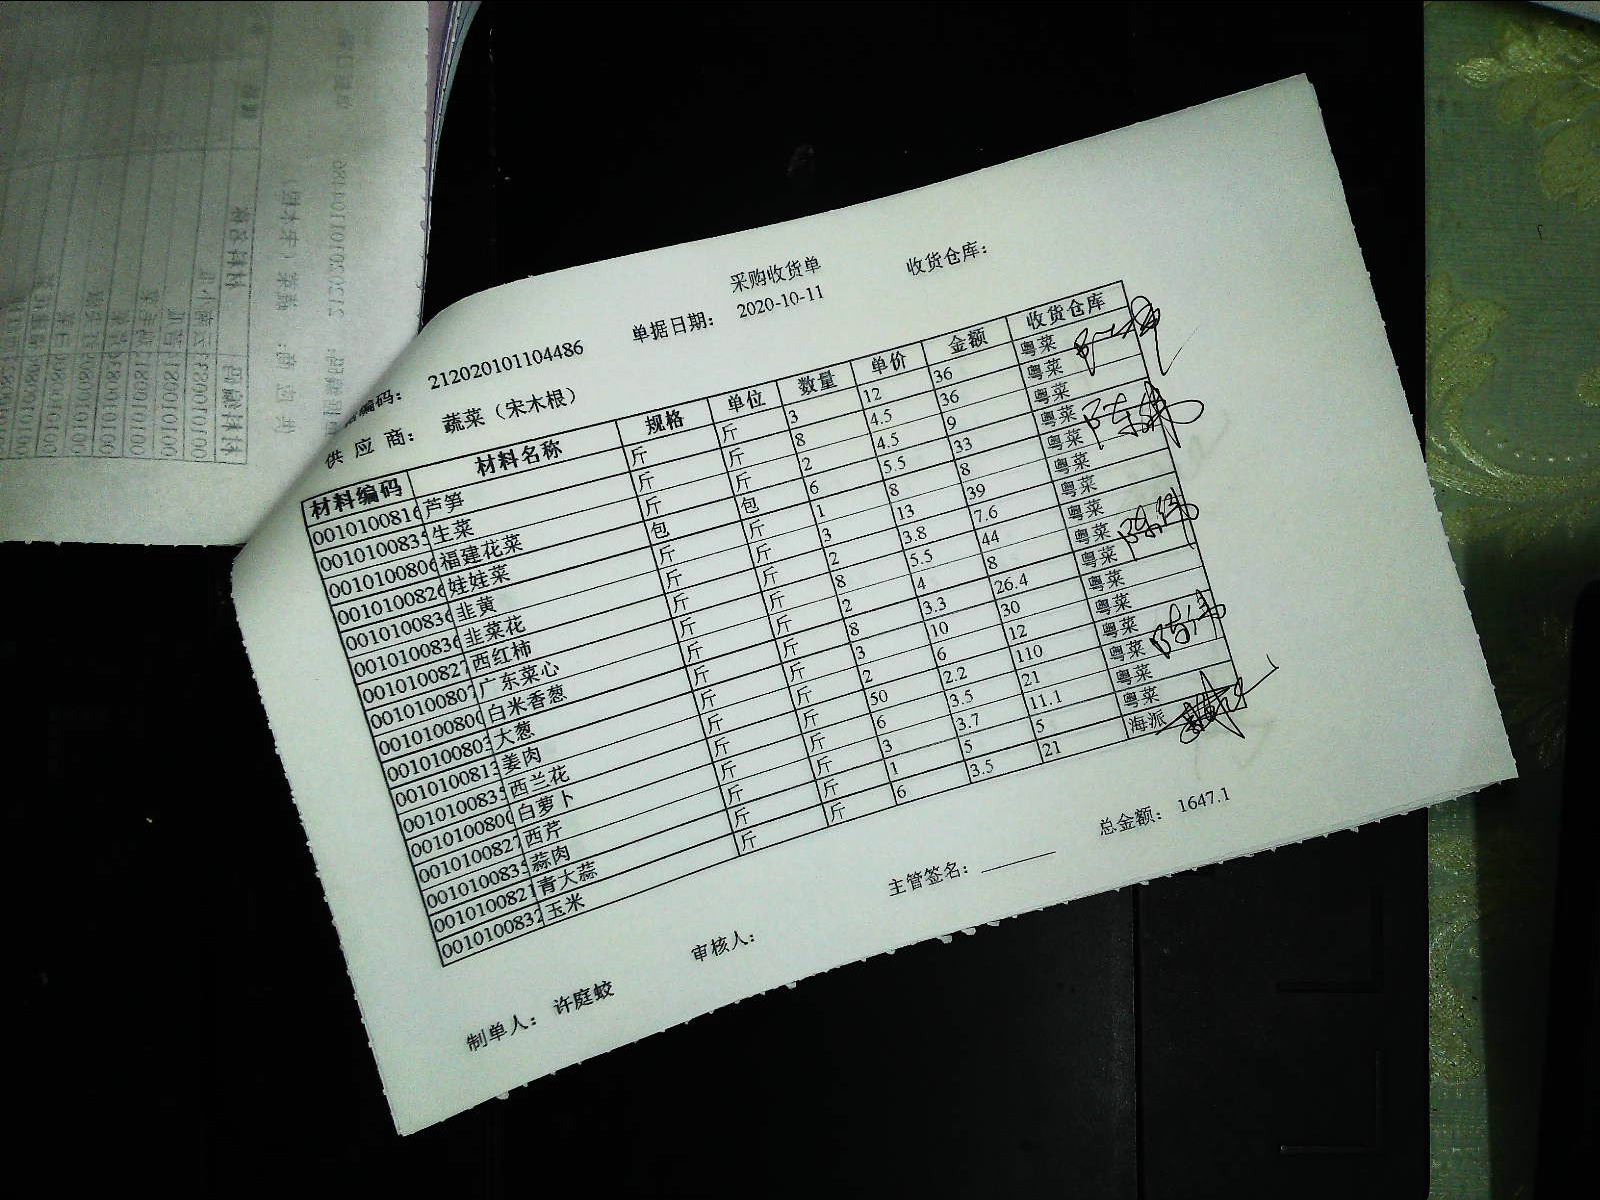 采购收货单
编码: 212020101104486 单据日期: 2020-10-11 收货仓库:
供应商: 蔬菜（宋木根）
材料编码 材料名称 规格 单位 数量 单价 金额 收货仓库
0010100816 芦笋 斤 斤 3 12 36 粤菜
001010083 生菜 斤 斤 8 4.5 36 粤菜
001010080 福建花菜 斤 斤 2 4.5 9 粤菜
001010082 娃娃菜 包 包 6 5.5 33 粤菜
001010083 韭黄 斤 斤 1 8 8 粤菜
001010083 韭菜花 斤 斤 3 13 39 粤菜
001010082 西红柿 斤 斤 2 3.8 7.6 粤菜
001010080 广东菜心 斤 斤 8 5.5 44 粤菜
001010080 白米香葱 斤 斤 2 4 8 粤菜
001010080 大葱 斤 斤 8 3.3 26.4 粤菜
001010081 姜肉 斤 斤 3 10 30 粤菜
001010083 西兰花 斤 斤 2 6 12 粤菜
001010080 白萝卜 斤 斤 50 2.2 110 粤菜
001010082 西芹 斤 斤 6 3.5 21 粤菜
001010083 蒜肉 斤 斤 3 3.7 11.1 粤菜
001010082 青大蒜 斤 斤 1 5 5 粤菜
001010083 玉米 斤 斤 6 3.5 21 海派
总金额: 1647.1
制单人: 许庭蛟 审核人: 主管签名: